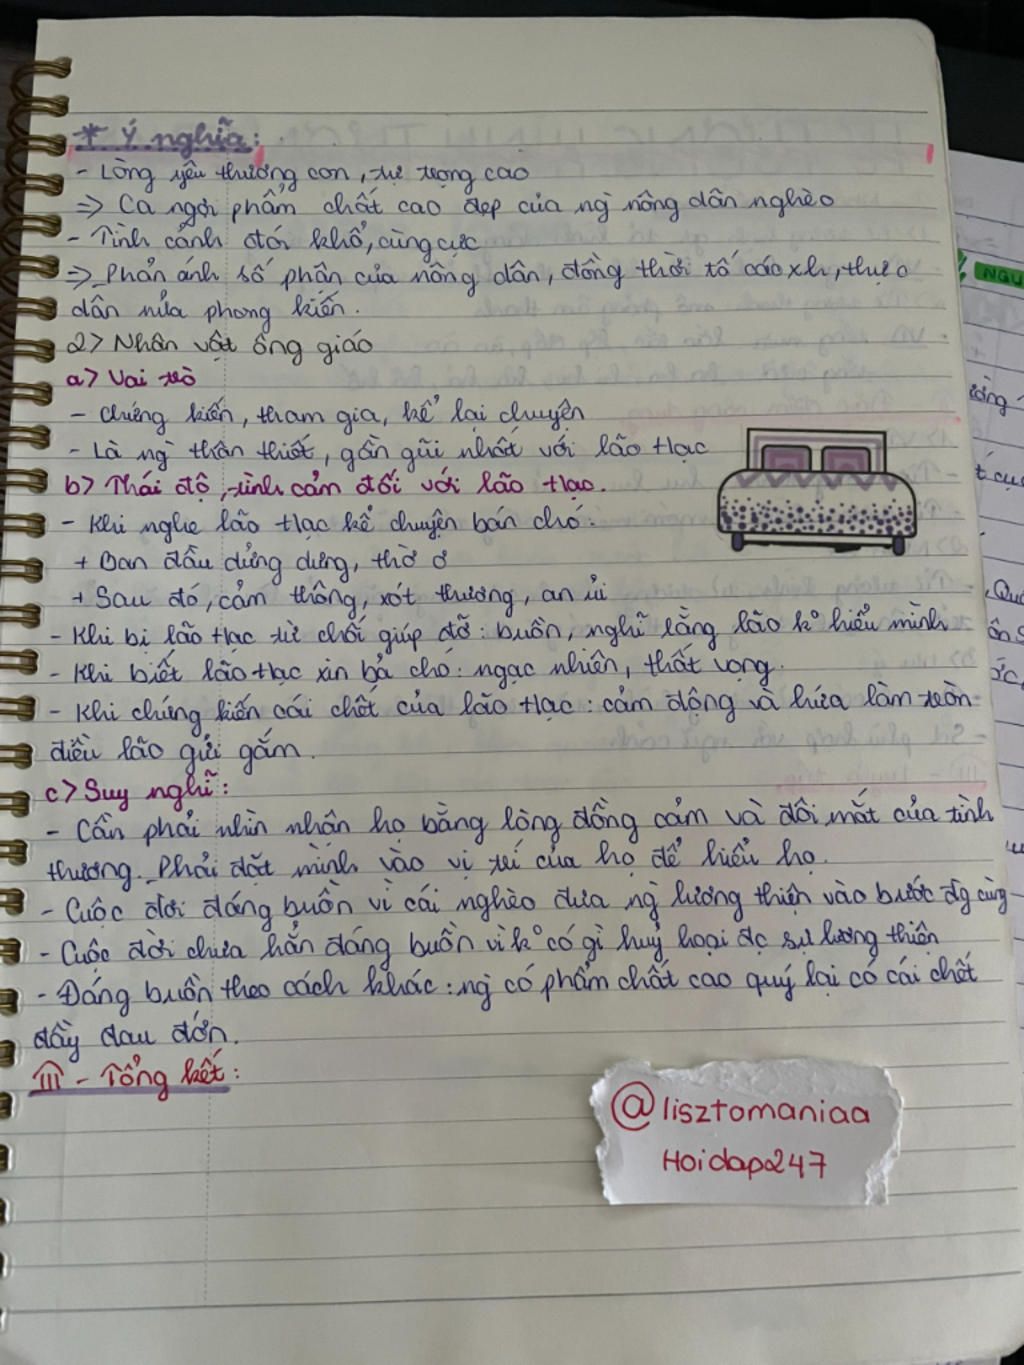 * Ý nghĩa:
- Lòng yêu thương con, tự trọng cao
=> Ca ngợi phẩm chất cao đẹp của ng` nông dân nghèo
- Tình cảnh đói khổ, cùng cực
=> Phản ánh số phận của nông dân, đồng thời tố cáo xh, thực
dân nửa phong kiến.
2> Nhân vật ông giáo
a> Vai trò
- Chứng kiến, tham gia, kể lại chuyện
- Là ng` thân thiết, gần gũi nhất với lão Hạc
b> Thái độ, tình cảm đối với lão Hạc.
- Khi nghe lão Hạc kể chuyện bán chó:
+ Ban đầu dửng dưng, thờ ơ
+ Sau đó, cảm thông, xót thương, an ủi
- Khi bị lão Hạc từ chối giúp đỡ: buồn, nghĩ rằng lão k° hiểu mình
- Khi biết lão Hạc xin bả chó: ngạc nhiên, thất vọng.
- Khi chứng kiến cái chết của lão Hạc: cảm động và hứa làm tròn
điều lão gửi gắm.
c> Suy nghĩ:
- Cần phải nhìn nhận họ bằng lòng đồng cảm và đôi mắt của tình
thương. Phải đặt mình vào vị trí của họ để hiểu họ.
- Cuộc đời đáng buồn vì cái nghèo đưa ng` lương thiện vào bước đg cùng
- Cuộc đời chưa hẳn đáng buồn vì k° có gì huỷ hoại đc sự lương thiện
- Đáng buồn theo cách khác: ng` có phẩm chất cao quý lại có cái chết
đầy đau đớn.
III - Tổng kết:
@lisztomaniaa
Hoidap247
NGU